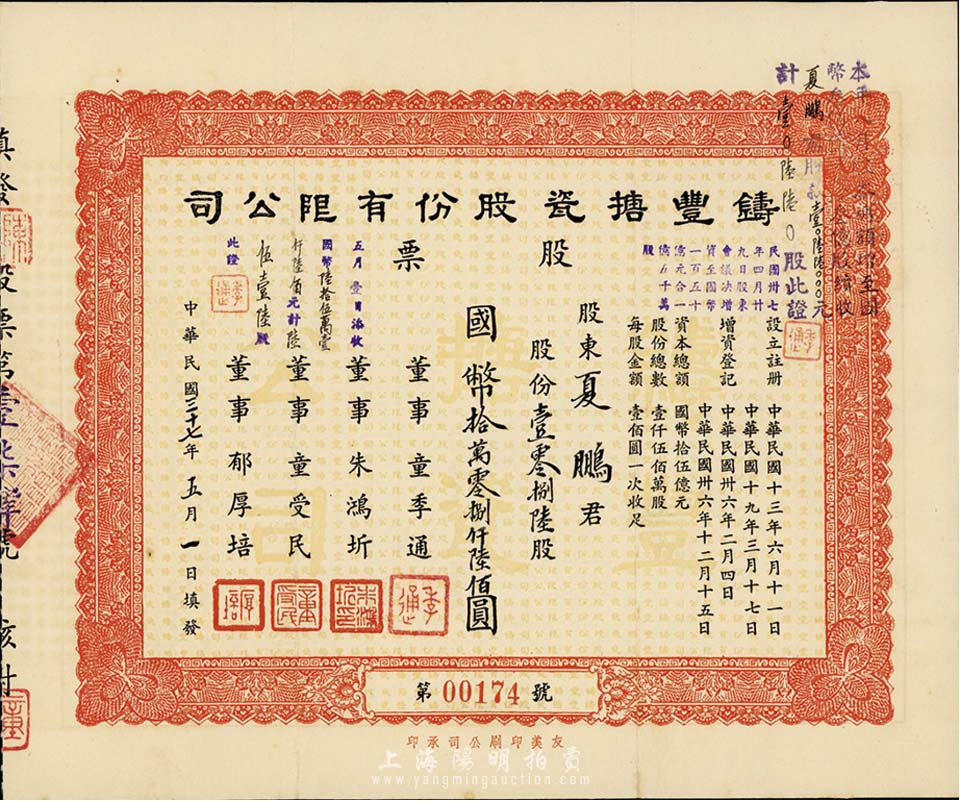 鑄豐搪瓷股份有限公司
股票
設立註册 中華民國十三年六月十一日
中華民國十九年三月十七日
增資登記 中華民國卅六年二月四日
中華民國卅六年十二月十五日
資本總額 國幣拾五億元
股份總數 壹仟伍佰萬股
每股金額 壹佰圓一次收足
民國卅七
年四月廿
九日股東
會議決增
資至國幣
一百五十
億元合一
億五千萬
股
股東夏鵬君
股份壹零捌陸股
國幣拾萬零捌仟陸佰圓
董事 童季通
董事 朱鴻圻
董事 童受民
董事 郁厚培
五月壹日添收
國幣陸拾伍萬壹
仟陸佰元計陸
伍壹陸股
此證
中華民國三十七年五月一日填發
夏鵬
計壹〇陸陸〇股此證
第 00174 號
友美印刷公司承印
上海陽明拍賣
www.yangmingauction.com